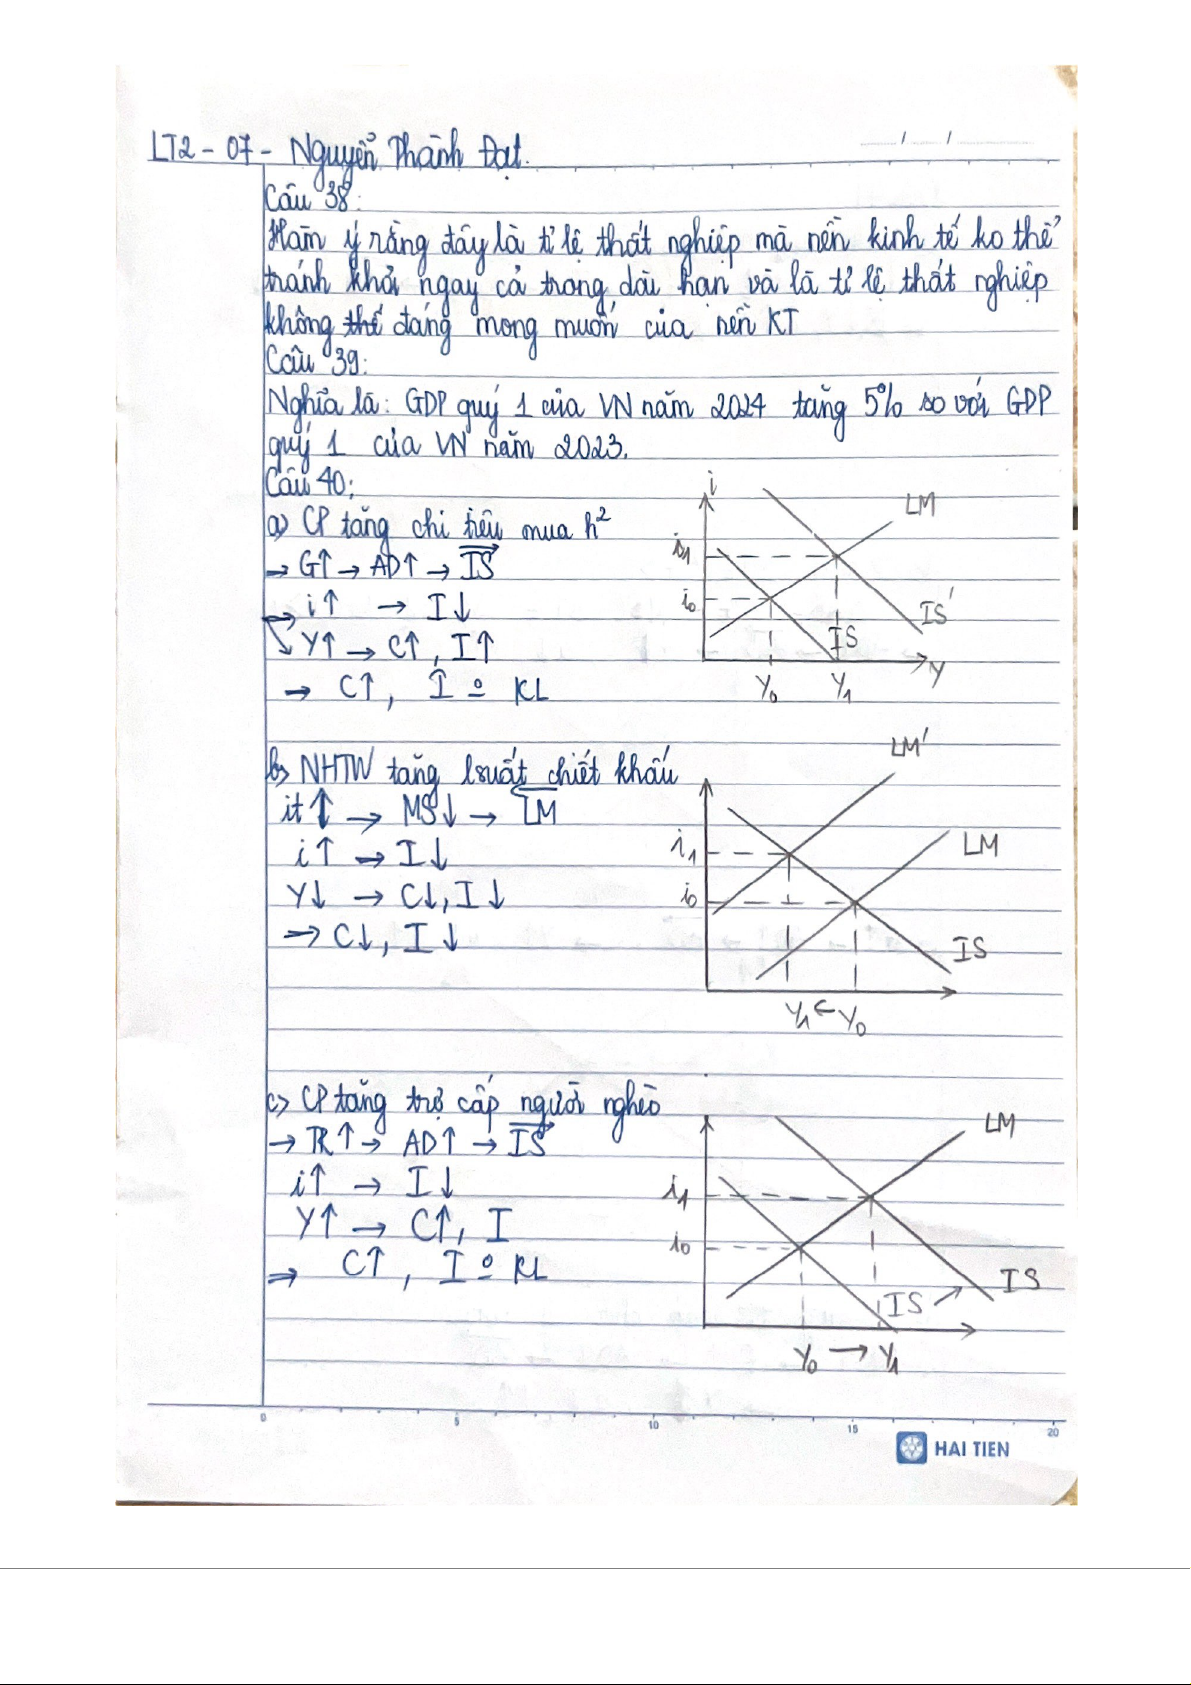 LT2 - 07 - Nguyễn Thành Đạt.
Câu 38:
Hàm ý rằng đây là tỉ lệ thất nghiệp mà nền kinh tế ko thể
tránh khỏi ngay cả trong dài hạn và là tỉ lệ thất nghiệp
không thể đáng mong muốn của nền KT
Câu 39:
Nghĩa là: GDP quý 1 của VN năm 2024 tăng 5% so với GDP
quý 1 của VN năm 2023.
Câu 40:
a) CP tăng chi tiêu mua h²
→ G↑ → AD↑ → IS
→ i↑ → I↓
↘ Y↑ → C↑, I↑
→ C↑, I º KL
i
LM
i₁
i₀
IS'
IS
Y
Y₀ Y₁
b) NHTW tăng lsuất chiết khấu
it↑ → MS↓ → LM
i↑ → I↓
Y↓ → C↓, I↓
→ C↓, I↓
LM'
i₁
LM
i₀
IS
Y₁ ← Y₀
c) CP tăng trợ cấp người nghèo
→ TR↑ → AD↑ → IS
i↑ → I↓
Y↑ → C↑, I
⇒ C↑, I º KL
LM
i₁
i₀
IS → IS
Y₀ → Y₁
0 5 10 15 20
HAI TIEN